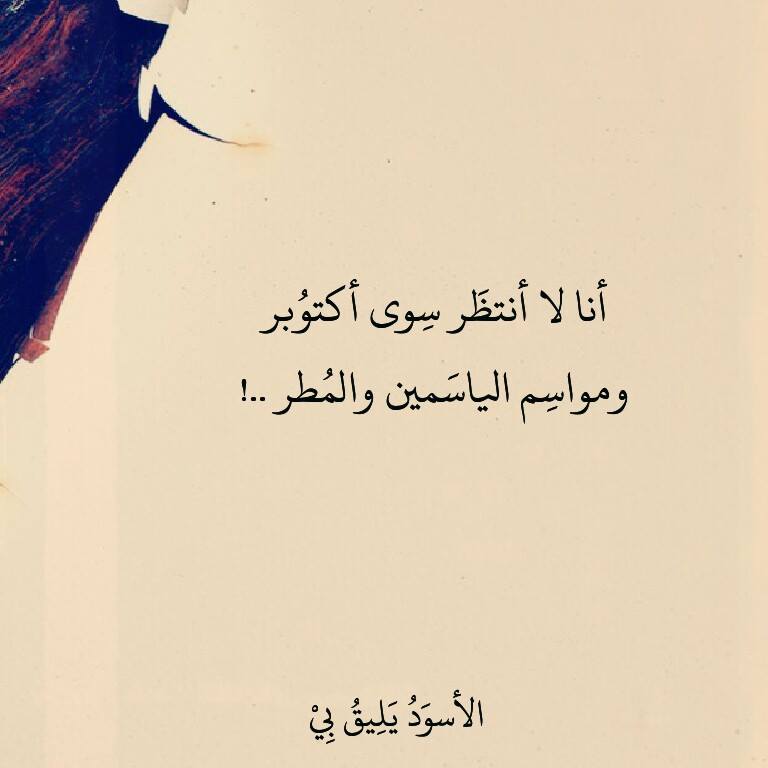 أنا لا أنتظَر سِوى أكتوُبر
ومواسِم الياسَمين والمُطر ..!
الأسوَدُ يَلِيقُ بِيْ